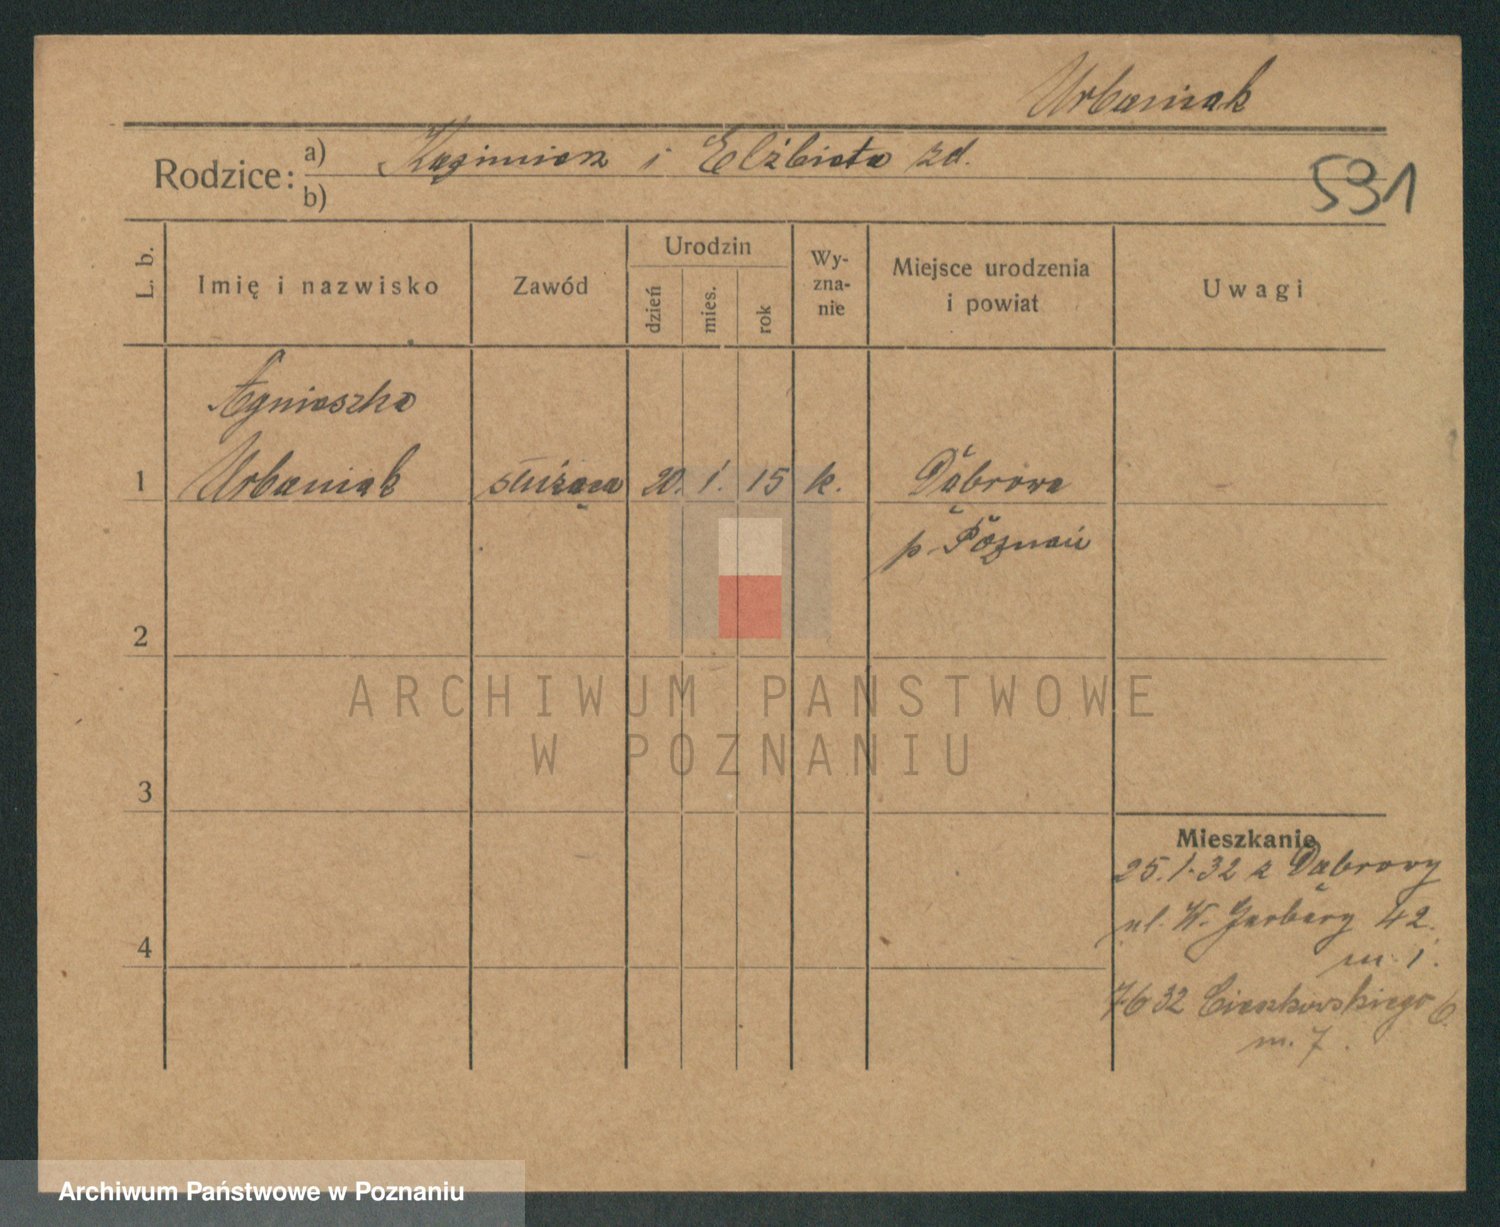 Urbaniak
Rodzice: a) Kazimierz i Elżbieta zd.
b)
531
L. b.
Imię i nazwisko
Zawód
Urodzin
dzień
mies.
rok
Wy-
zna-
nie
Miejsce urodzenia
i powiat
Uwagi
Agnieszka
1 Urbaniak służąca 20. 1. 15 k. Dąbrowa
p. Poznań
2
3
4
Mieszkanie
25.1.32 z Dąbrowy
ul. W. Garbary 42.
m. 1.
7 6 32 Cieszkowskiego 6.
m. 7.
ARCHIWUM PAŃSTWOWE
W POZNANIU
Archiwum Państwowe w Poznaniu